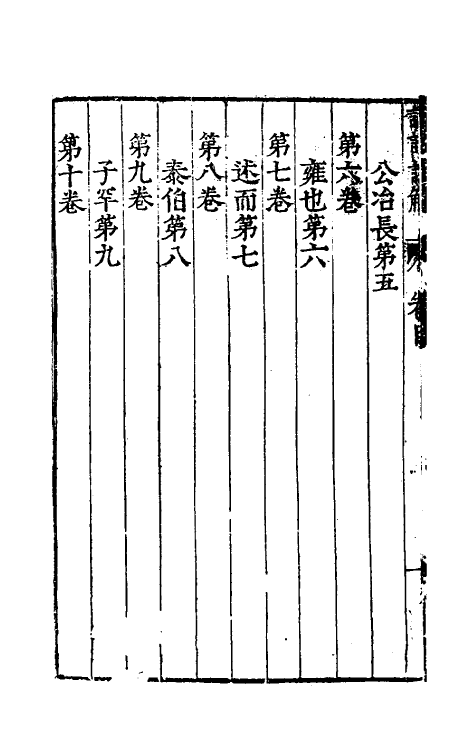 公冶長第五
第六卷
雍也第六
第七卷
述而第七
第八卷
泰伯第八
第九卷
子罕第九
第十卷